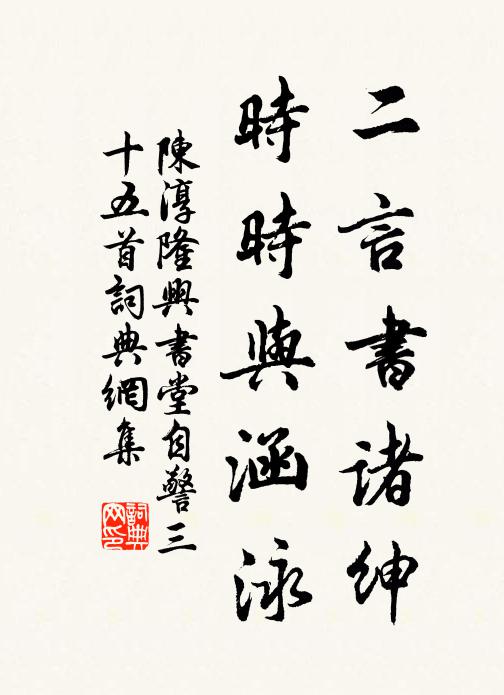 二言書諸紳
時時與涵泳
陳淳隆興書堂自警三
十五首詞典網集
詞典
网印